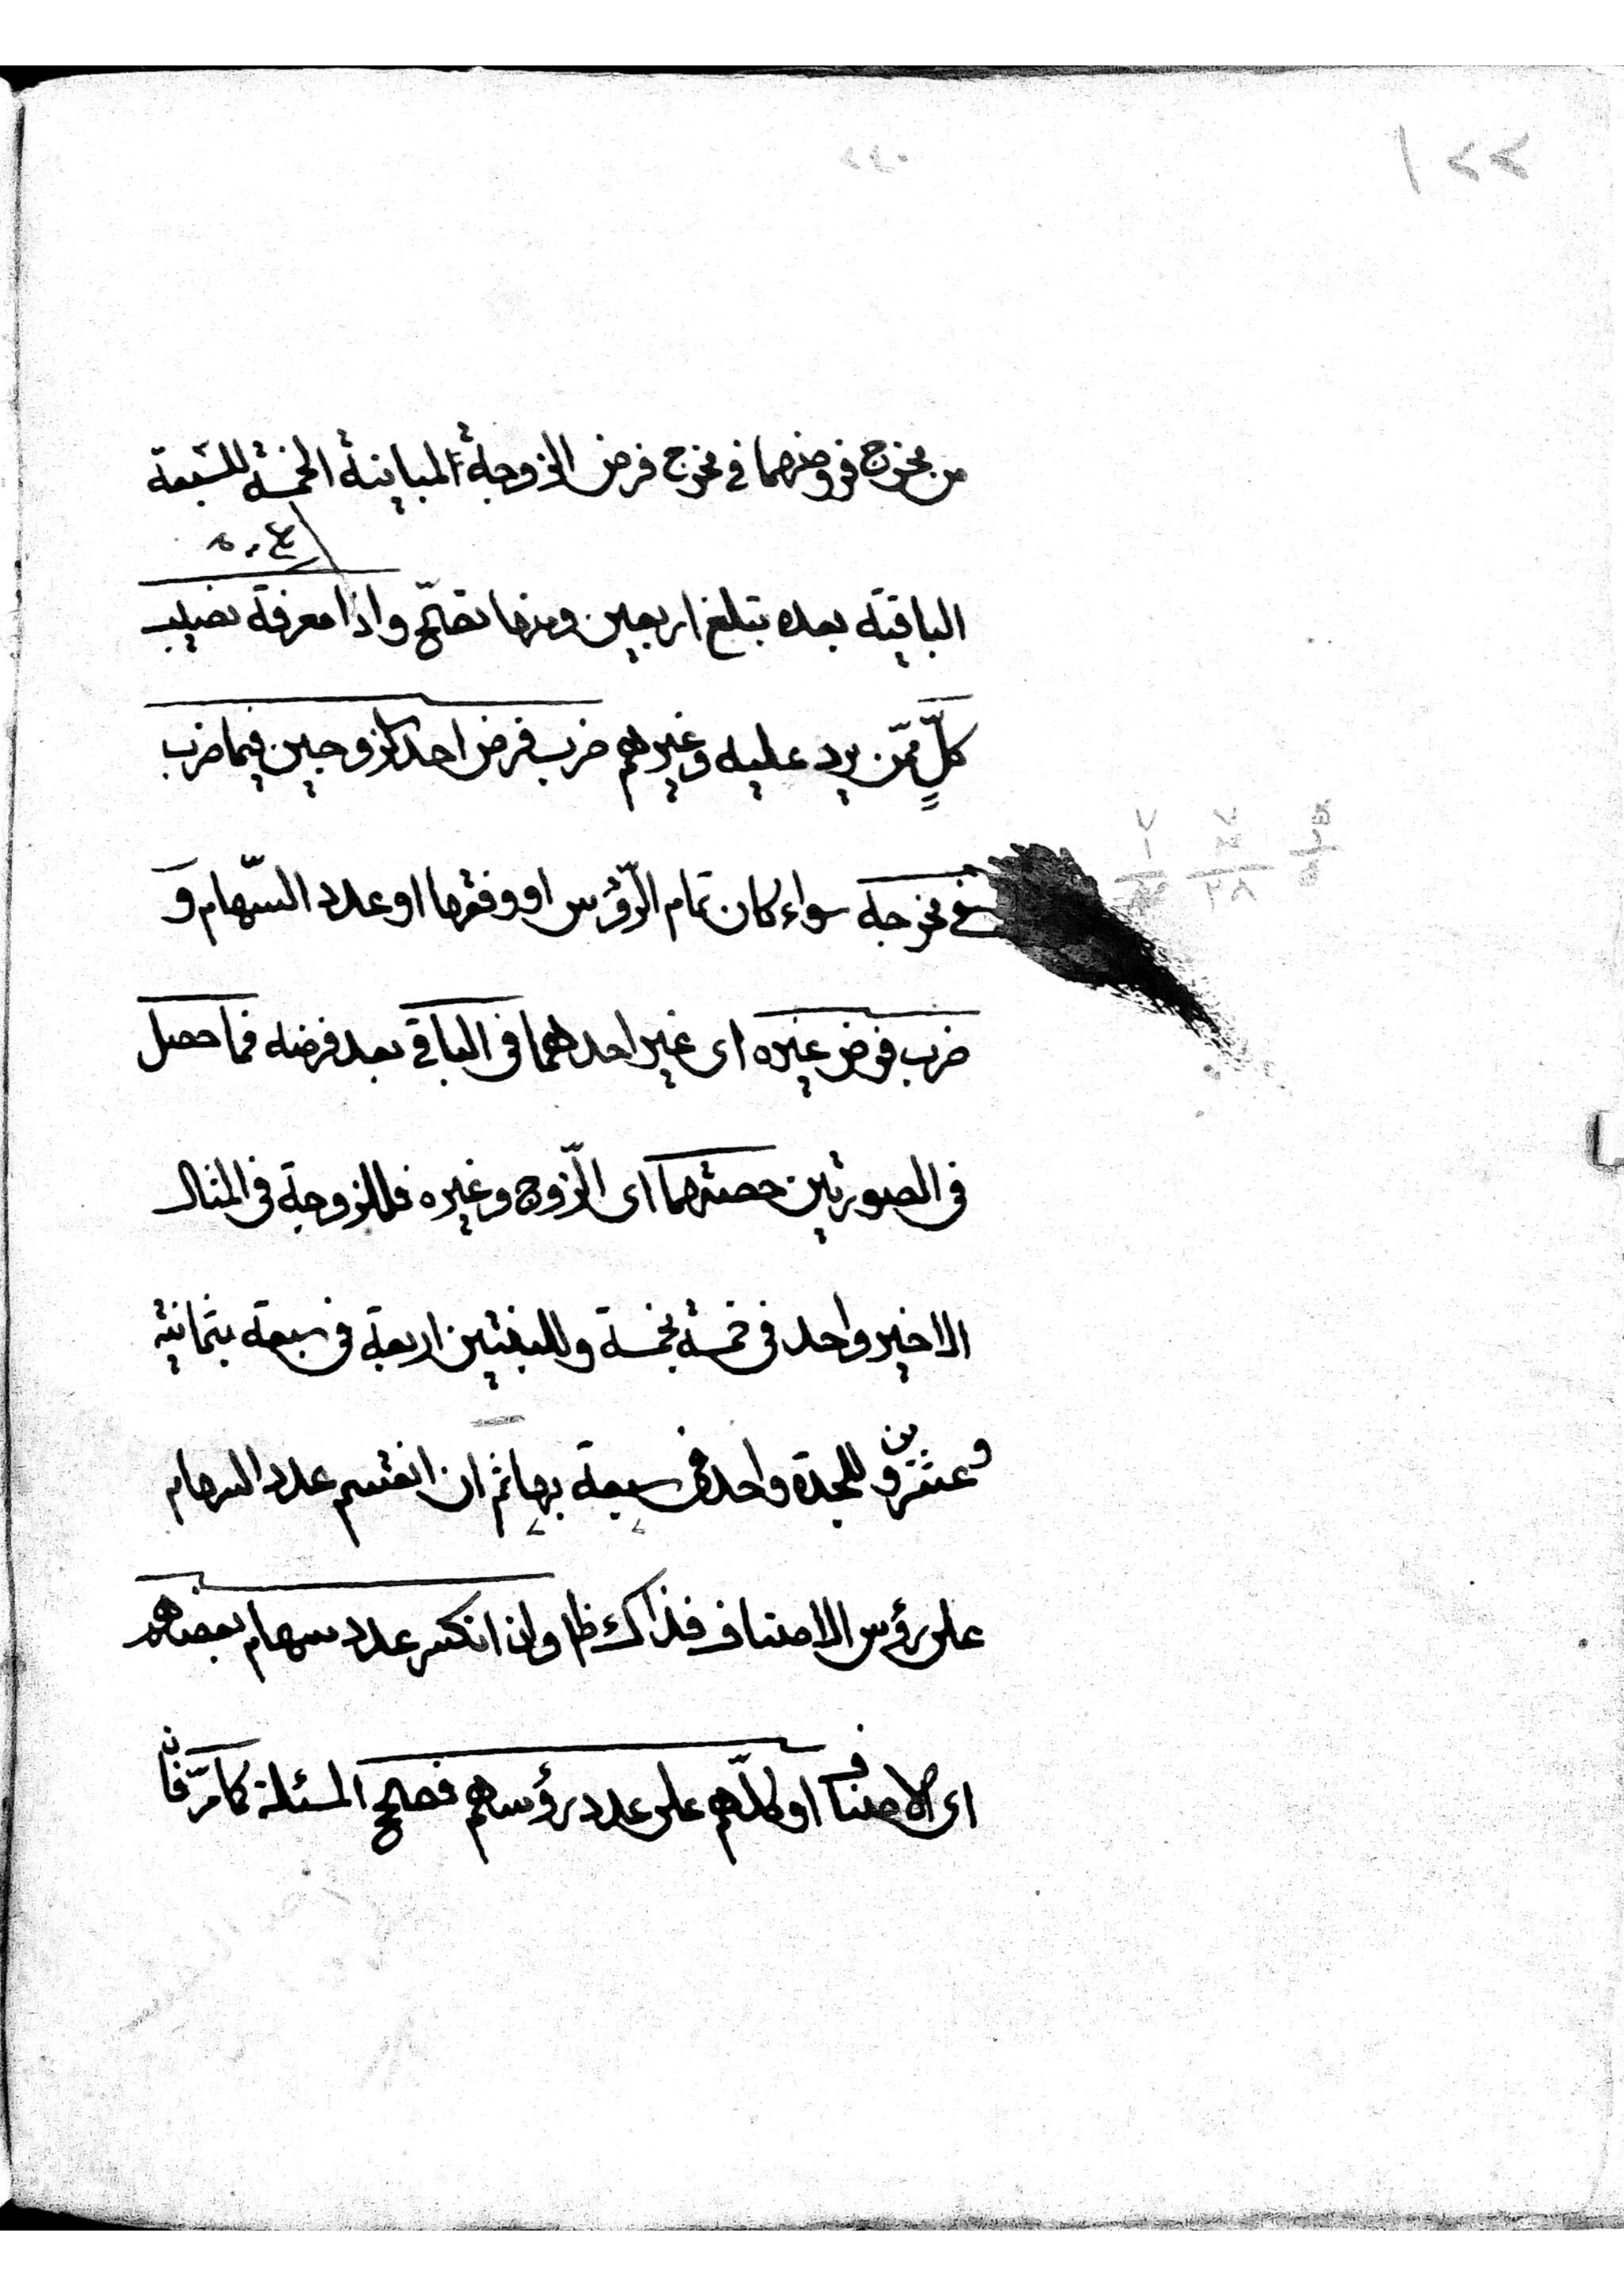 ١٢٢
٢٤٠
من مخرج فروضهما في مخرج فرض الزوجة المباينة الخمسة للسبعة
الباقية بعده تبلغ اربعين ومنها تصحّ واذا معرفة نصيب
كلٍّ ممّن يرد عليه وغيرهم ضرب فرض احد الزوجين فيما ضرب
في مخرجه سواء كان تمام الرّؤس او وفقها او عدد السّهام و
ضرب فرض غيره اى غير احدهما فى الباقي بعد فرضه فما حصل
فى الصورتين حصتهما اى الزّوج وغيره فللزوجة فى المثال
الاخير واحد فى خمسة بخمسة وللبنتين اربعة فى سبعة بثمانية
وعشرين وللجدة واحد فى سبعة بها ثم ان انقسم عدد السهام
على رؤس الاصناف فذاك ظ وان انكسر عدد سهام بعضهم
اى الاصناف او كلّهم على عدد رؤسهم فصحح المسئلة كما مرّ فان